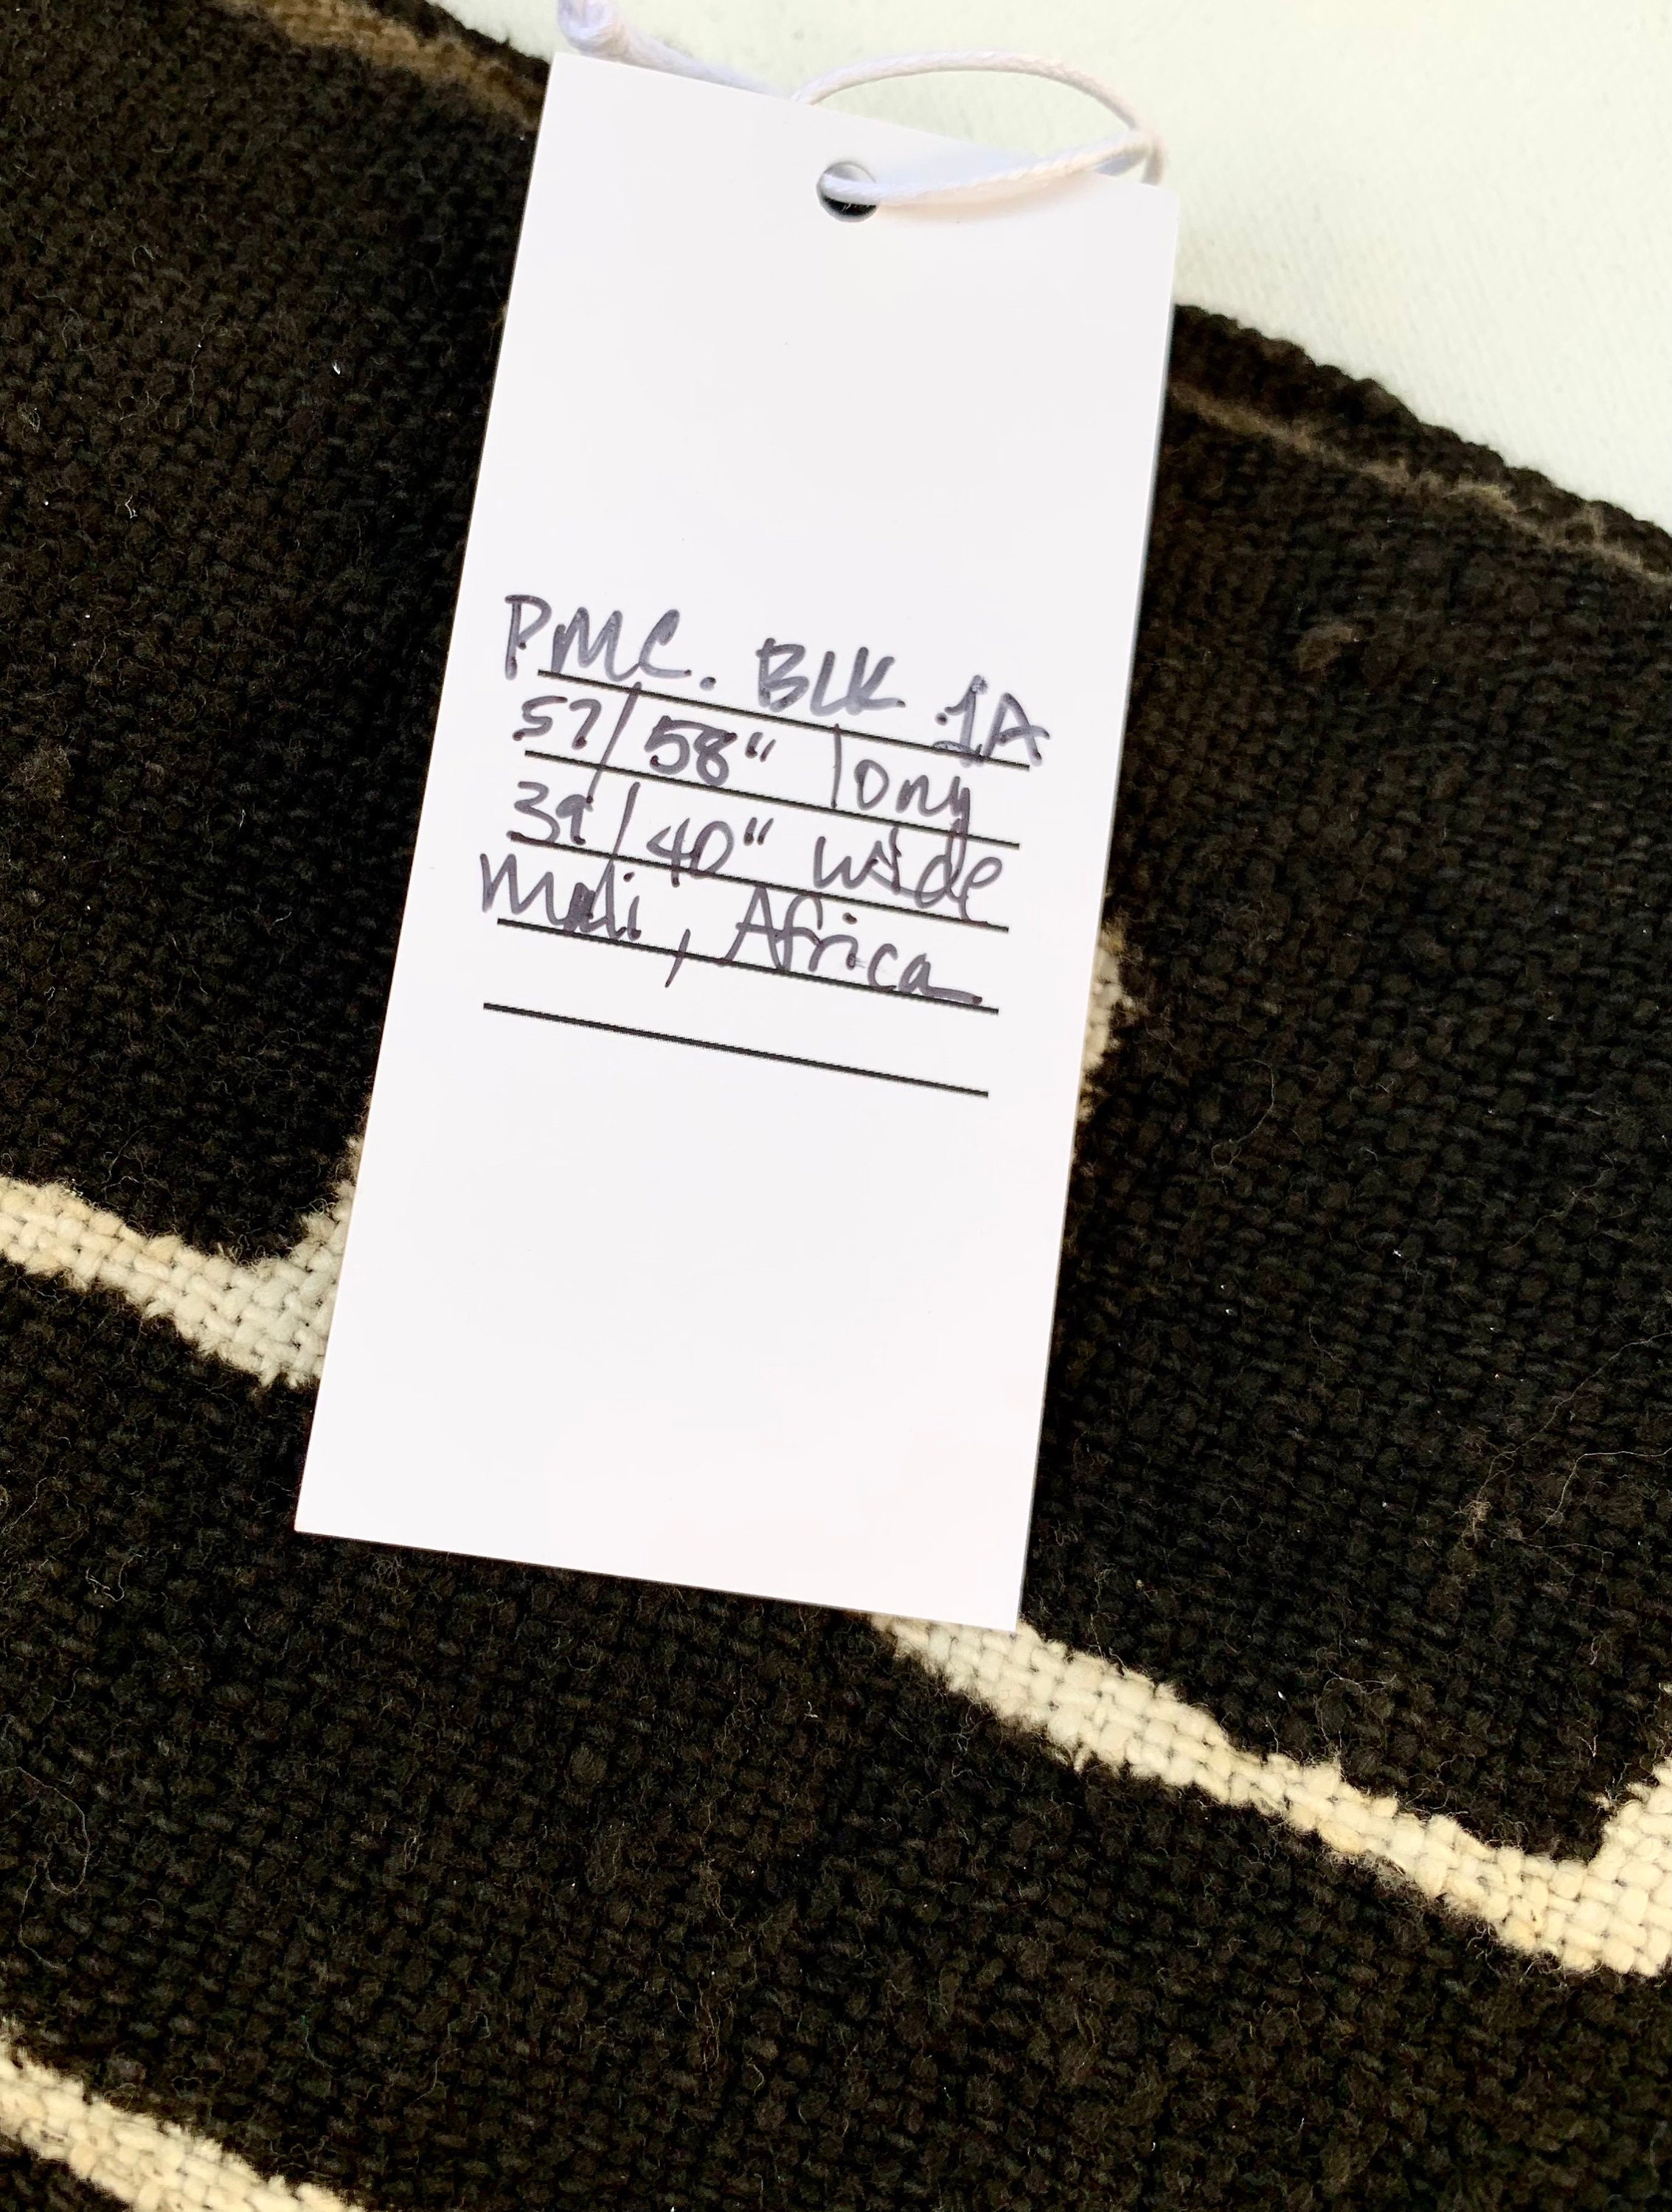 PMC. BLK .1A
57/58" long
39/40" wide
Mali, Africa